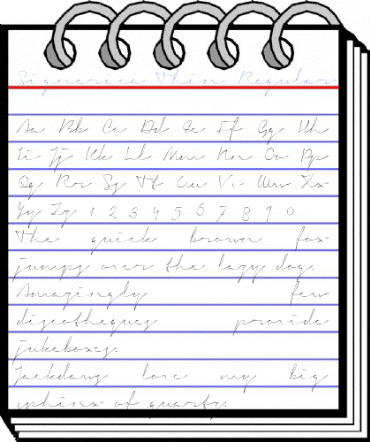 Signerica Thin Regular
Aa Bb Cc Dd Ee Ff Gg Hh
Ii Jj Kk Ll Mm Nn Oo Pp
Qq Rr Ss Tt Uu Vv Ww Xx
Yy Zz 1 2 3 4 5 6 7 8 9 0
The quick brown fox
jumps over the lazy dog.
Amazingly few
discotheques provide
jukeboxes.
Jackdaws love my big
sphinx of quartz.